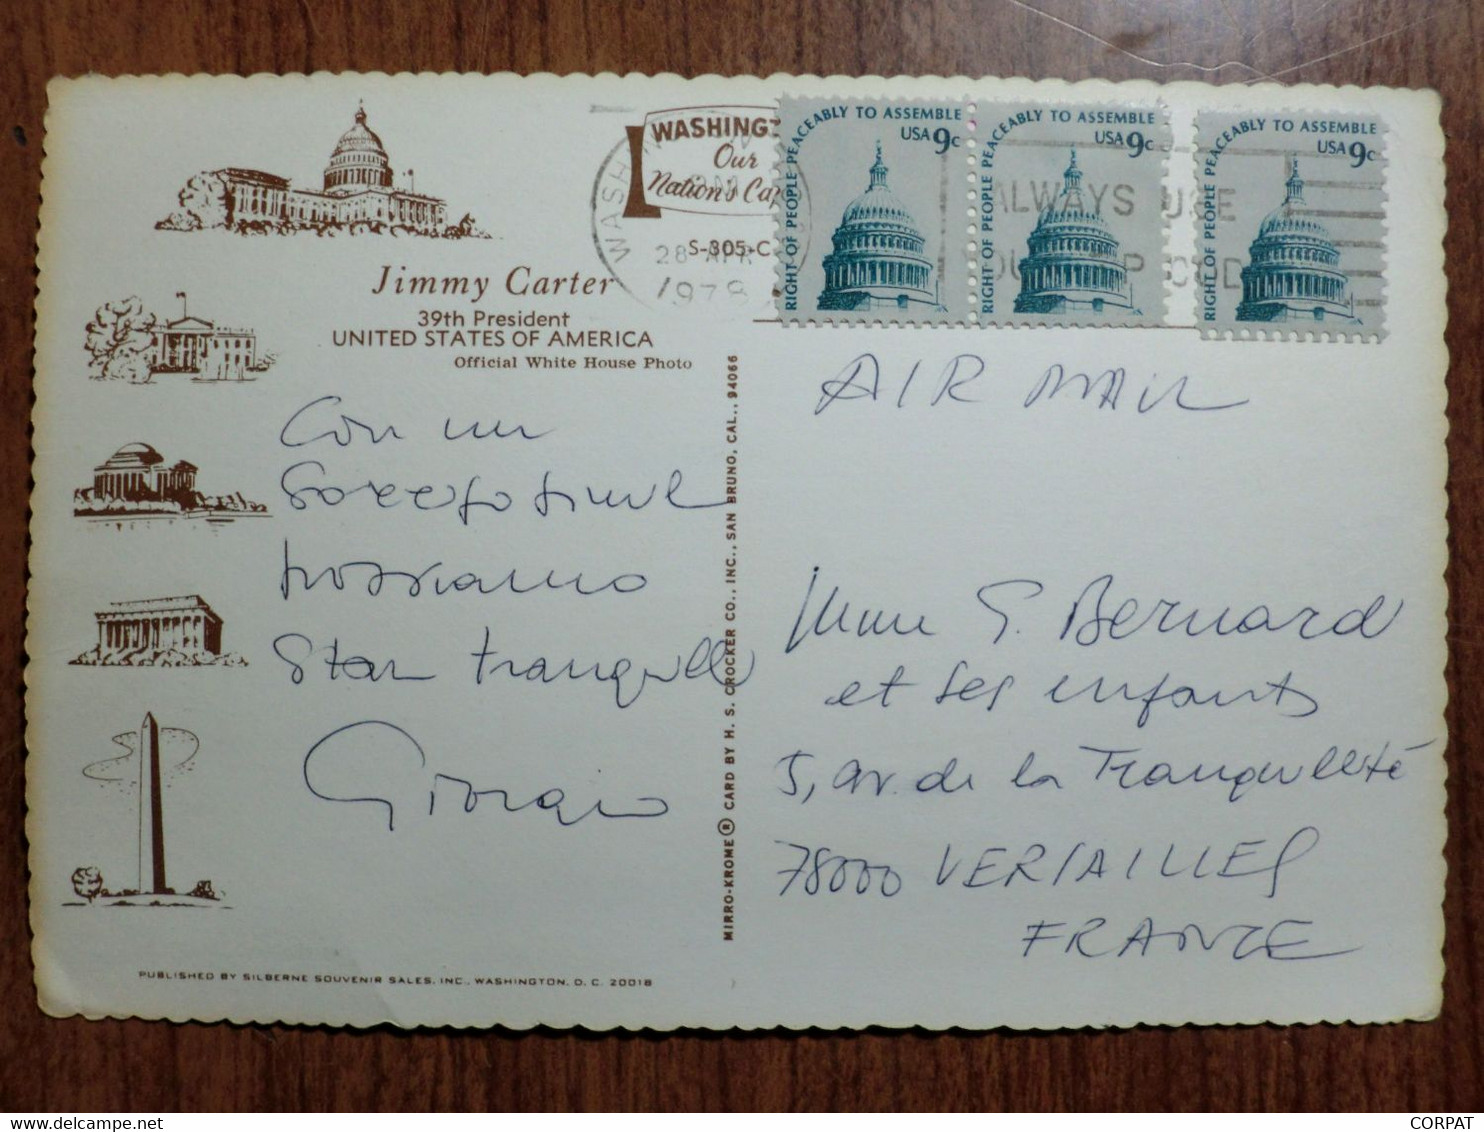 WASHINGT
Our
Nation's Cap
S-305-C
WASH
PM
28 APR
1978
RIGHT OF PEOPLE PEACEABLY TO ASSEMBLE
USA 9c
RIGHT OF PEOPLE PEACEABLY TO ASSEMBLE
USA 9c
RIGHT OF PEOPLE PEACEABLY TO ASSEMBLE
USA 9c
ALWAYS USE
ZIP CODE
Jimmy Carter
39th President
UNITED STATES OF AMERICA
Official White House Photo
Con un
sorriso simile
possiamo
star tranquilli
Giorgio
MIRRO-KROME ® CARD BY H. S. CROCKER CO., INC., SAN BRUNO, CAL., 94066
AIR MAIL
Mme G. Bernard
et ses enfants
5, av. de la Tranquillité
78000 VERSAILLES
FRANCE
PUBLISHED BY SILBERNE SOUVENIR SALES, INC., WASHINGTON, D. C. 20018
CORPAT